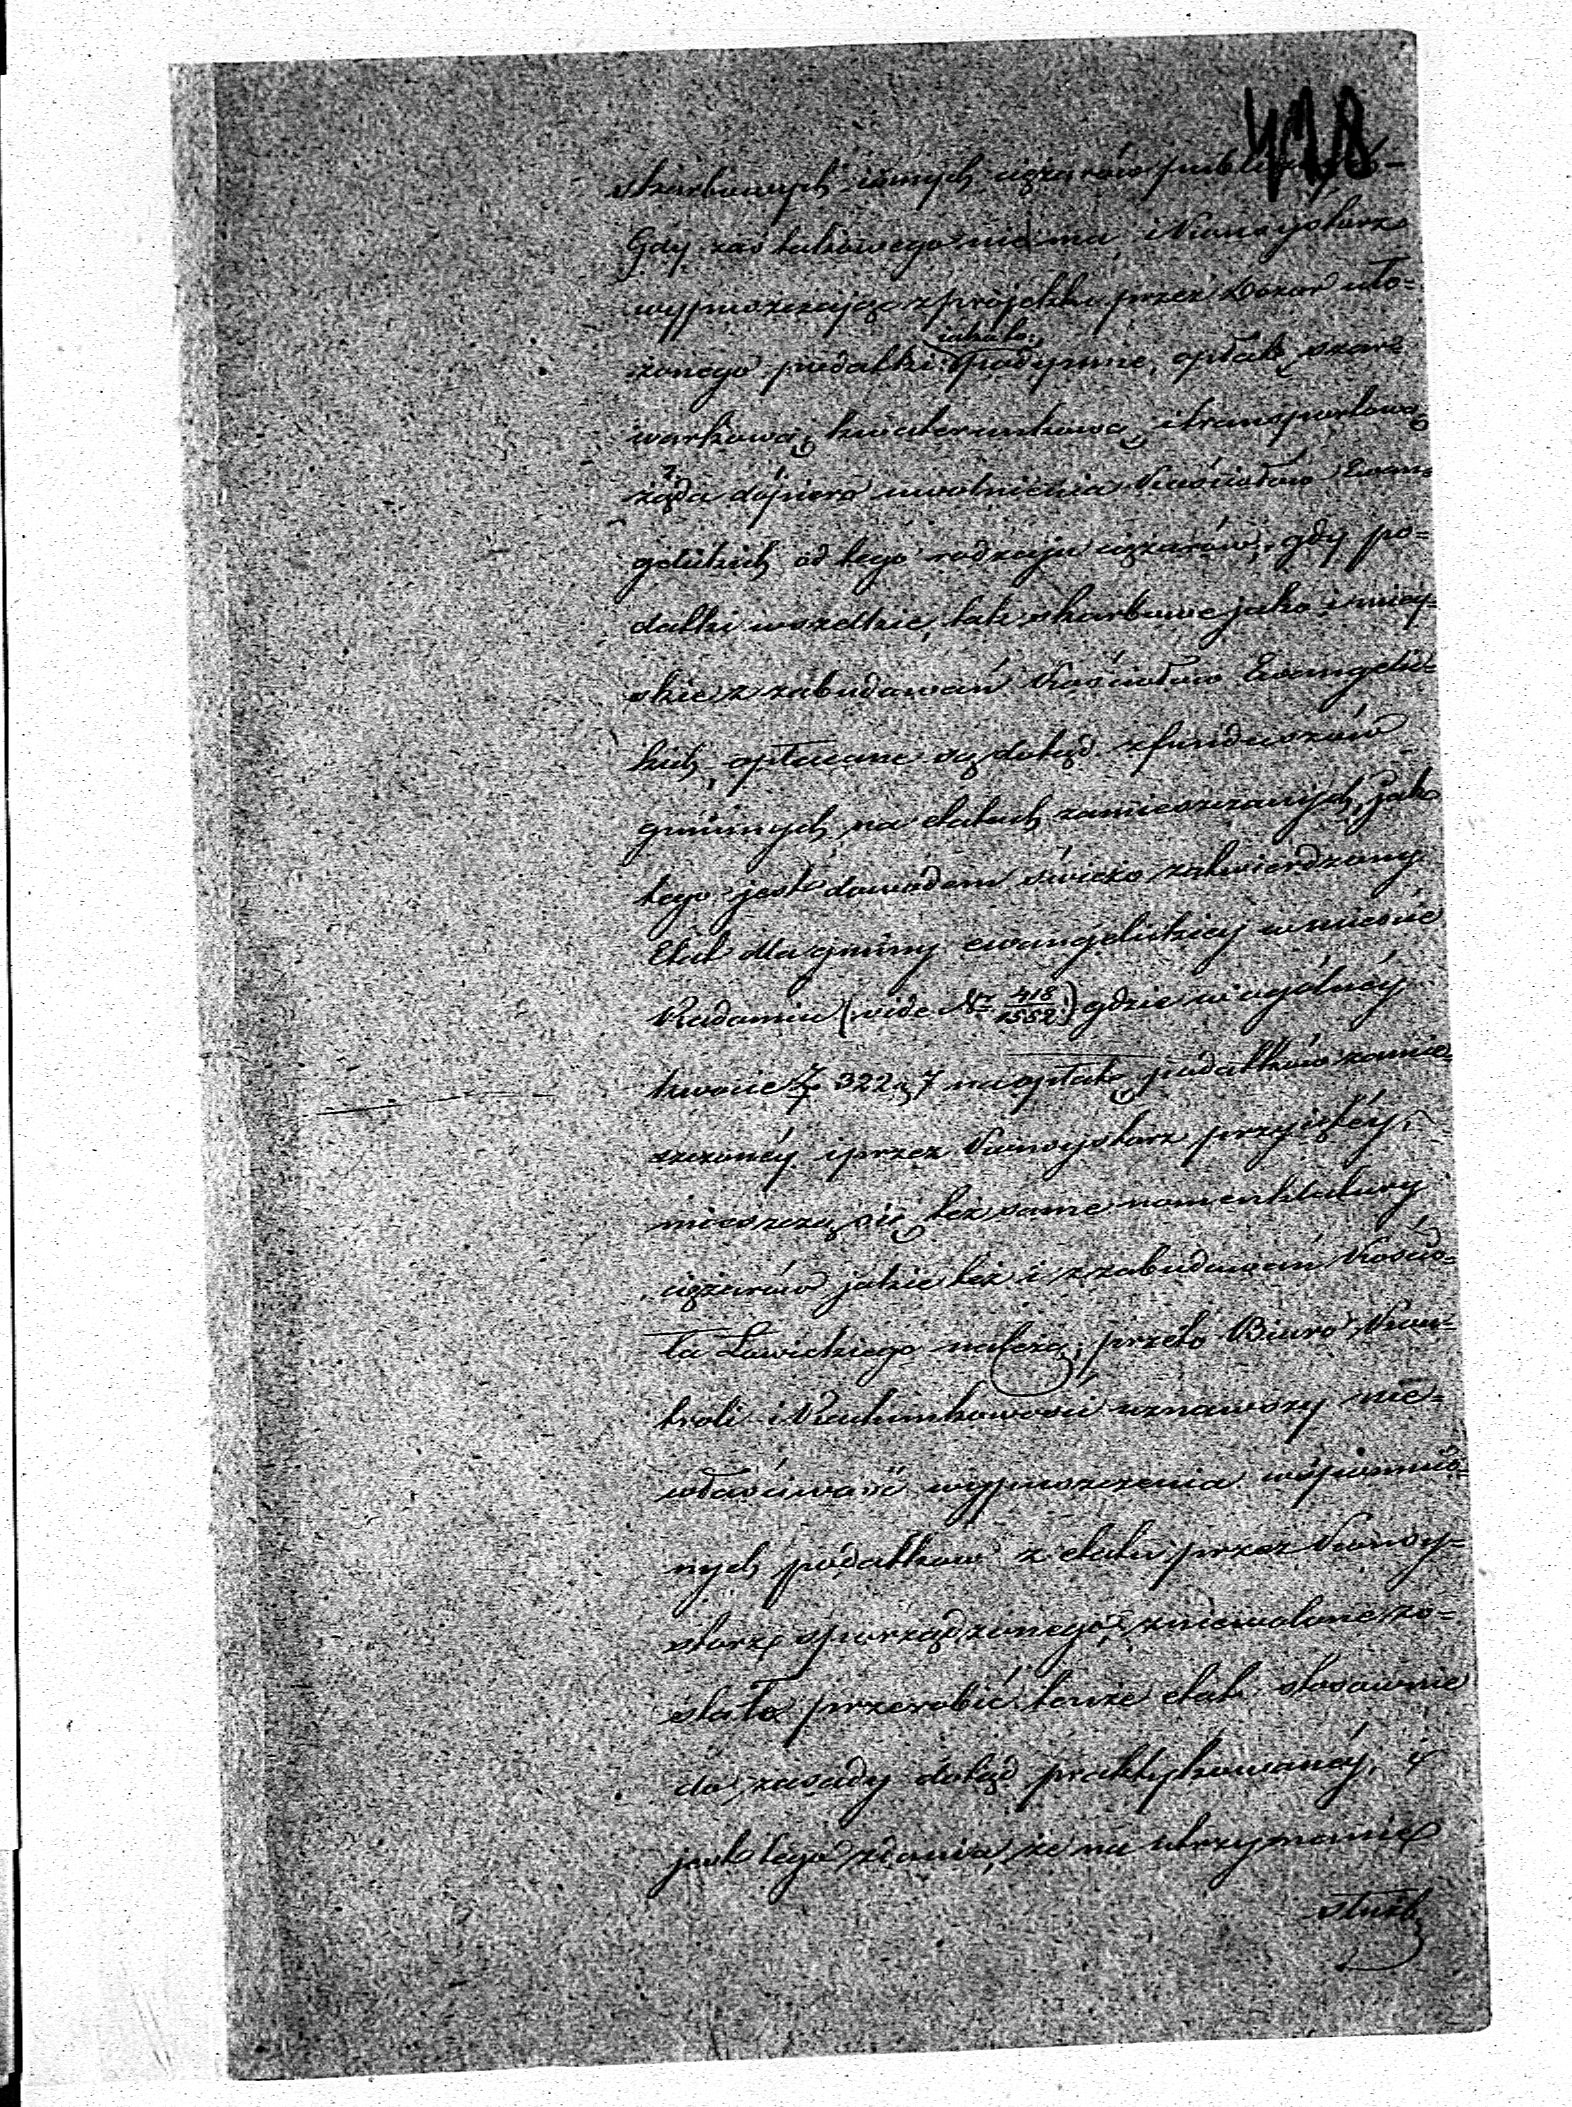 418
skarbowych i innych ciężarów publicznych –
Gdy zaś takowego nie ma, i Konsystorz
wypuszczając z projektu przez Dozór uło=
żonego podatki jako to: Podymne, opłatę szar=
warkową, kwaterunkową i transportową
żąda dopiero uwolnienia Kościołów Ewan=
gelickich od tego rodzaju ciężarów, gdy po=
datki wszelkie, tak skarbowe jako i miey=
skie z zabudowań Kościołów Ewangelic=
kich, opłacane są dotąd z funduszów
gminnych na etatach zamieszczanych, jak
tego jest dowodem świeżo zatwierdzony
Etat dla gminy ewangelickiey w mieście
Radomiu (vide Nr 418/1552) gdzie w ogólnéy
kwocie 322 7 na opłatę podatków zamie=
szczonéy i przez Konsystorz przyjętéy,
mieszczą się też same nomenklatury
ciężarów jakie też i z zabudowań Kościo=
ła Łowickiego należą; przeto Biuro Kon=
troli i Rachunkowości uznawszy nie=
właściwość wypuszczenia wspomnio=
nych podatków z etatu przez Konsy=
storz sporządzonego, zniewolone zo=
stało przerobić tenże etat stosownie
do zasady dotąd praktykowanéy, i
jest tego zdania, że na utrzymanie
służb